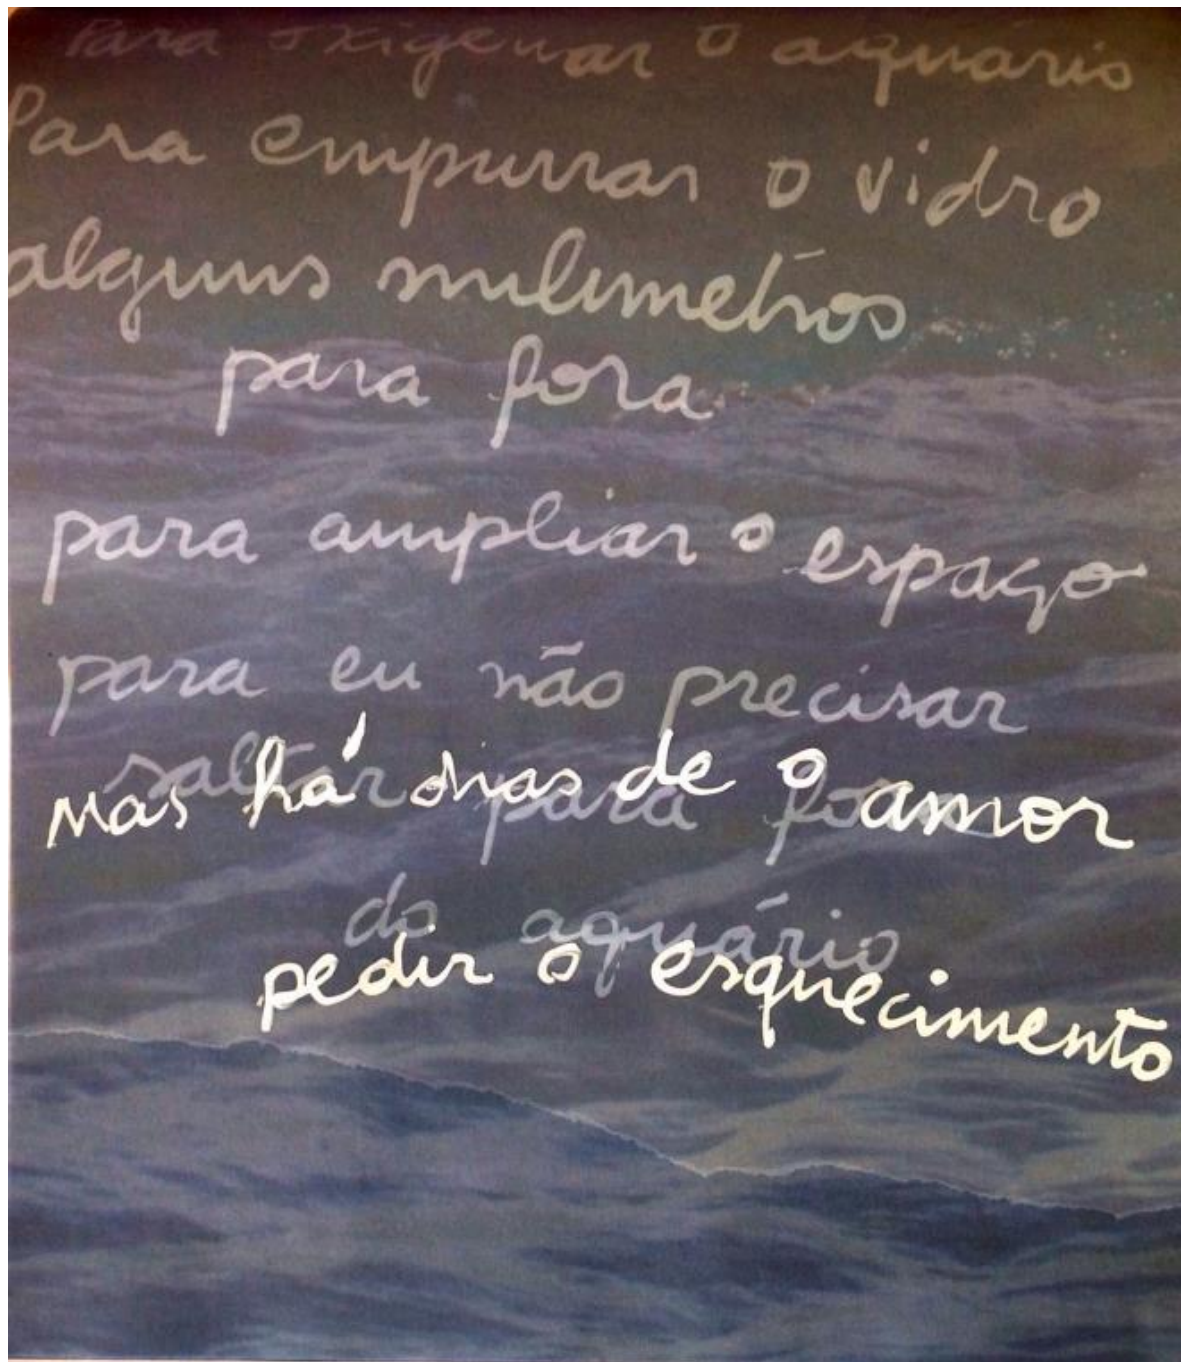 Para oxigenar o aquário
Para empurrar o vidro
alguns milimetros
para fora
para ampliar o espaço
para eu não precisar
saltar para fora
Mas há dias de o amor
do aquário
pedir o esquecimento